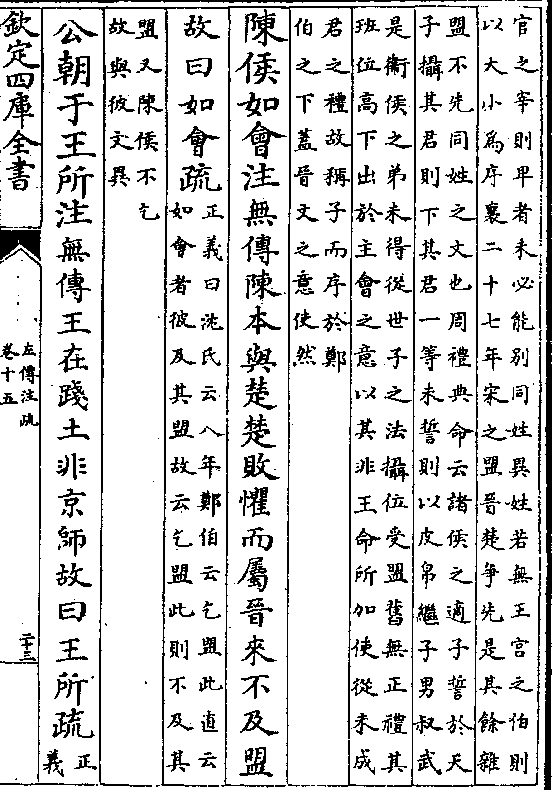 官之宰則卑者未必能别同姓異姓若無王宫之伯則
以大小為序襄二十七年宋之盟晉楚爭先是其餘雜
盟不先同姓之文也周禮典命云諸侯之適子誓於天
子攝其君則下其君一等未誓則以皮帛繼子男叔武
是衛侯之弟未得從世子之法攝位受盟舊無正禮其
班位高下出於主會之意以其非王命所加使從未成
君之禮故稱子而序於鄭
伯之下蓋晉文之意使然
陳侯如會注無傳陳本與楚楚敗懼而屬晉來不及盟
故曰如會疏
正義曰沈氏云八年鄭伯云乞盟此直云
如會者彼及其盟故云乞盟此則不及其
盟又陳侯不乞
故與彼文異
公朝于王所注無傳王在踐土非京師故曰王所疏
正
義
欽定四庫全書
左傳注疏
卷十五
二十三